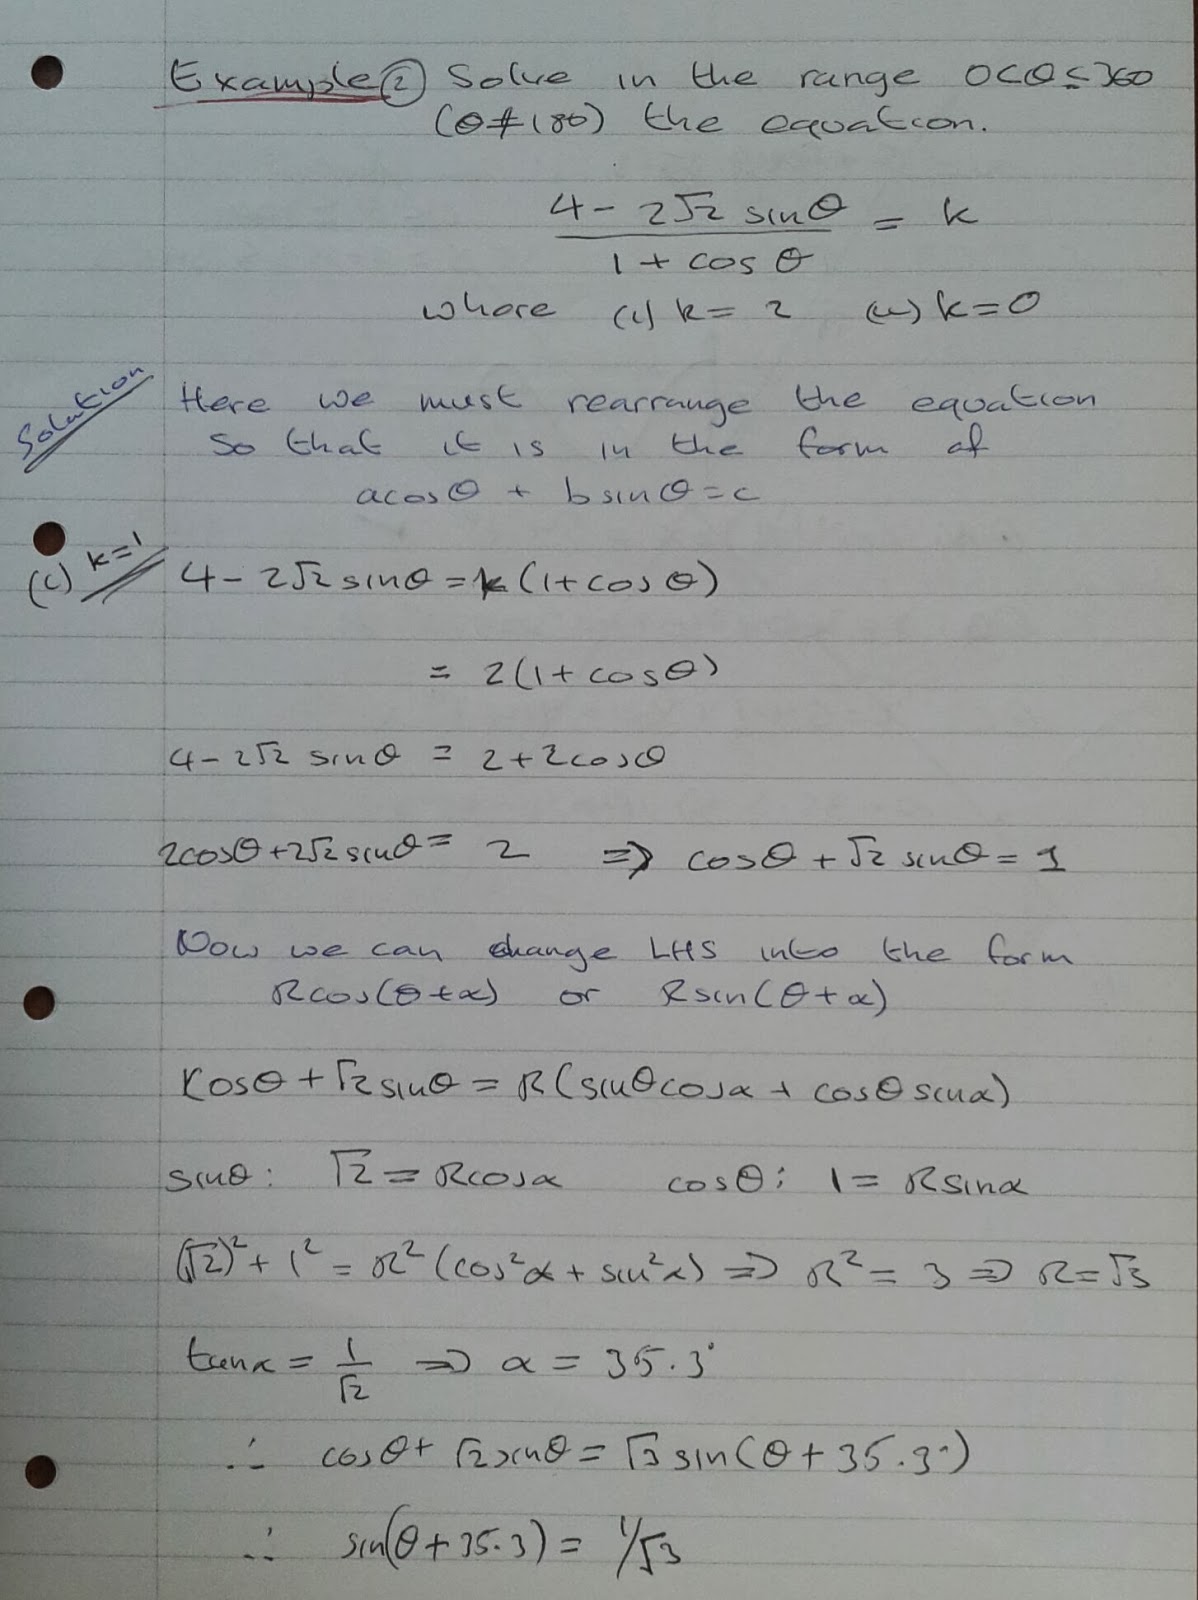 Example ② Solve in the range 0<θ≤360
(θ≠180) the equation.
4 - 2√2 sinθ = k
1 + cos θ
where (i) k = 2 (ii) k = 0
Solution
Here we must rearrange the equation
so that it is in the form of
acosθ + bsinθ = c
(i) k=1
4 - 2√2 sinθ = k(1+cos θ)
= 2(1+cosθ)
4 - 2√2 sinθ = 2+2cosθ
2cosθ+2√2 sinθ = 2 => cosθ + √2 sinθ = 1
Now we can change LHS into the form
Rcos(θ+α) or Rsin(θ+α)
cosθ + √2 sinθ = R(sinθcosα + cosθsinα)
sinθ: √2 = Rcosα cosθ: 1 = Rsinα
(√2)² + 1² = R²(cos²α + sin²α) => R² = 3 => R=√3
tanα = 1/√2 => α = 35.3°
∴ cosθ + √2 sinθ = √3 sin(θ+35.3°)
∴ sin(θ+35.3) = 1/√3